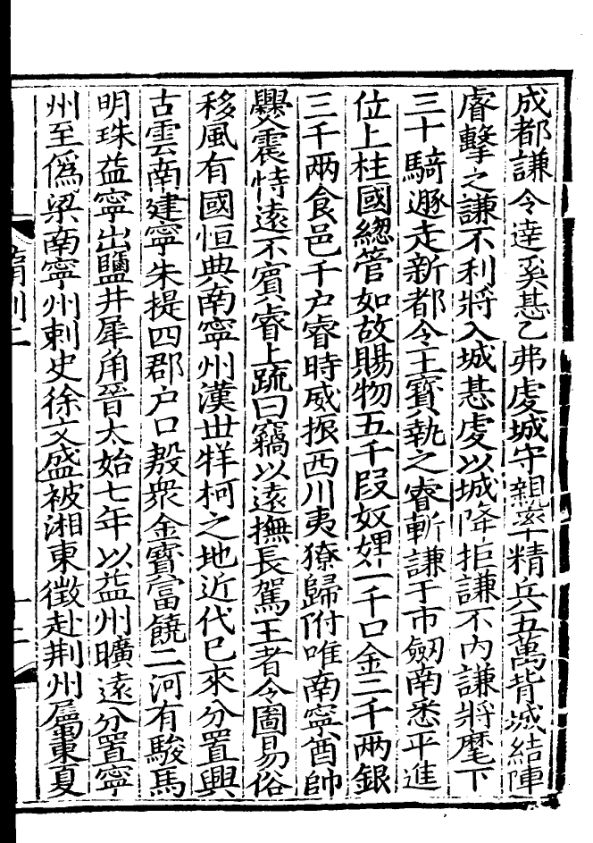 成都謙令達奚惎乙弗虔城守親率精兵五萬背城結陣
睿擊之謙不利將入城惎虔以城降拒謙不內謙將麾下
三十騎遯走新都令王寶執之睿斬謙于市劒南悉平進
位上柱國總管如故賜物五千段奴婢一千口金二千兩銀
三千兩食邑千户睿時威振西川夷獠歸附唯南寧酋帥
爨震恃遠不賓睿上䟽曰竊以遠撫長駕王者令圖易俗
移風有國恒典南寧州漢丗牂柯之地近代已來分置興
古雲南建寧朱提四郡户口殷衆金寶富饒二河有駿馬
明珠益寧出鹽井犀角晉太始七年以益州曠遠分置寧
州至僞梁南寧州刺史徐文盛被湘東徵赴荆州屬東夏